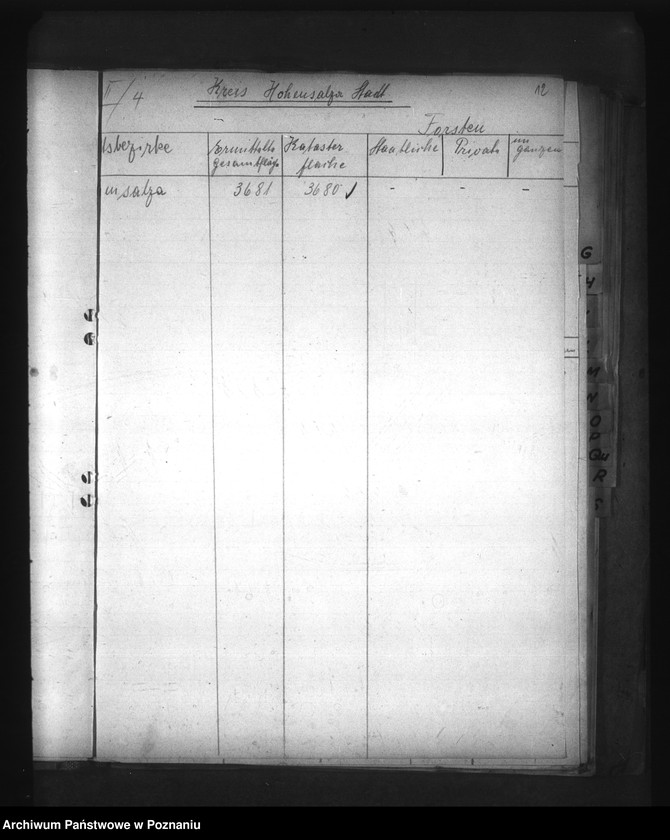 II/4 Kreis Hohensalza Stadt 12
Forsten
tsbezirke Ermittelte Kataster Staatliche Privat im
gesamtfläche fläche ganzen
ensalza 3681 3680 - - -
G
H
M
N
O
P
Qu
R
S
Archiwum Państwowe w Poznaniu